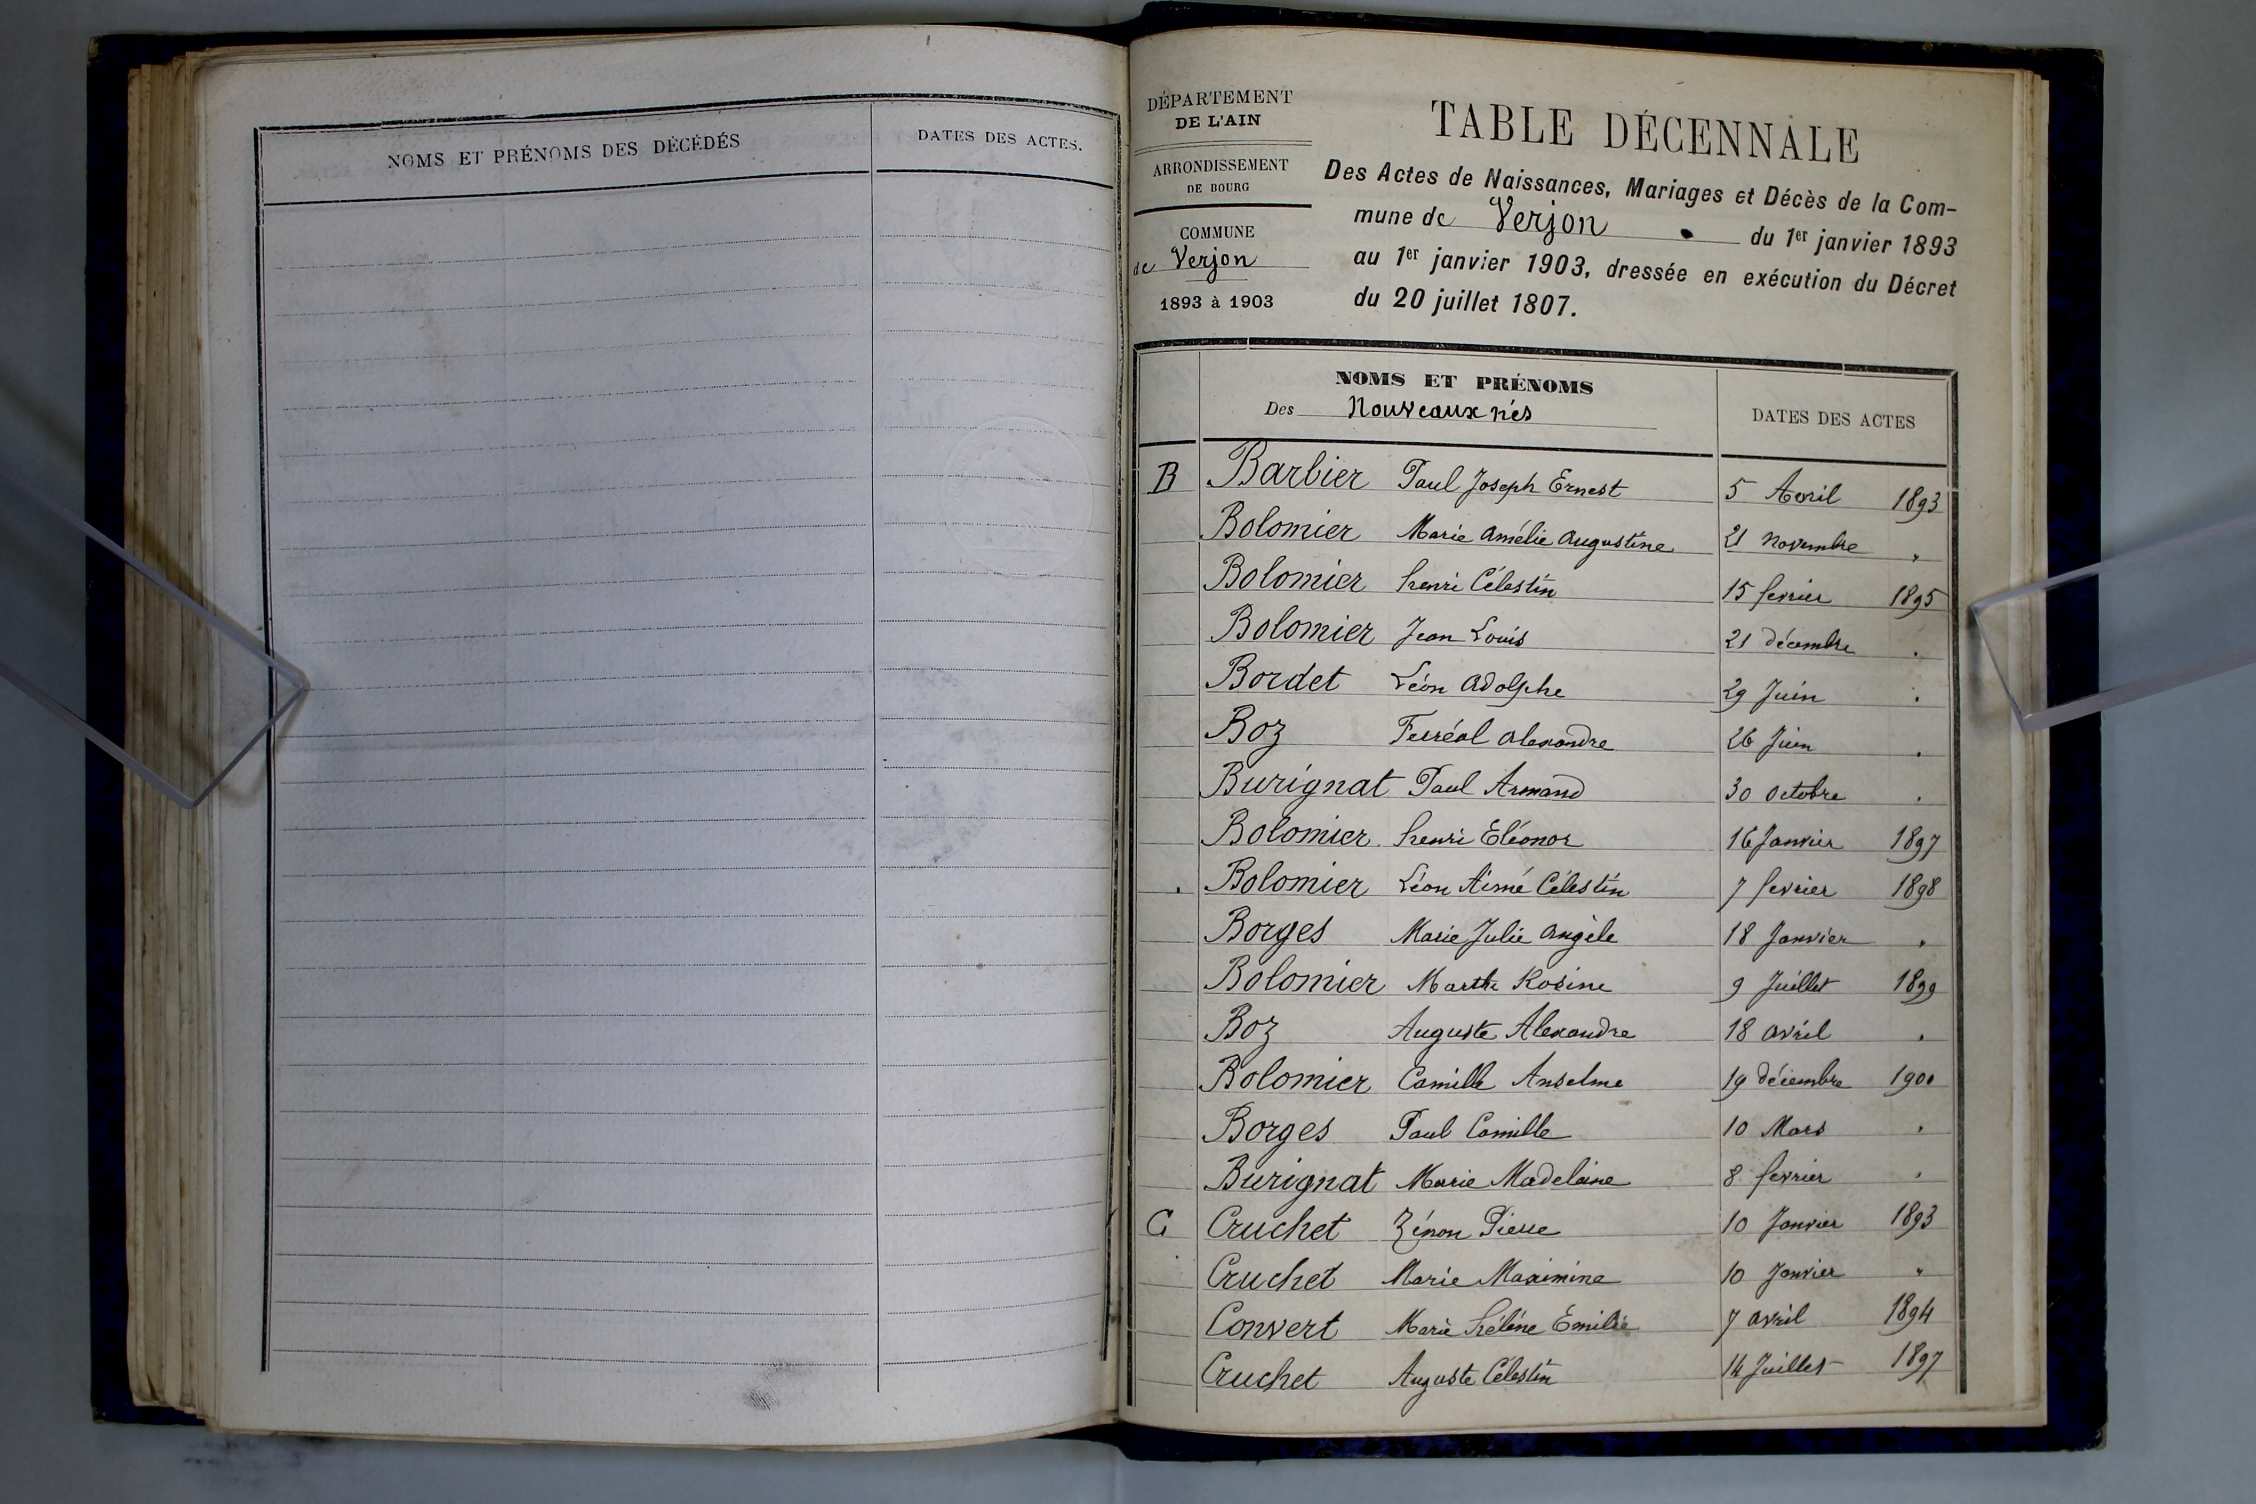 NOMS ET PRÉNOMS DES DÉCÉDÉS
DATES DES ACTES.
DÉPARTEMENT
DE L'AIN
ARRONDISSEMENT
DE BOURG
COMMUNE
de Verjon
1893 à 1903
TABLE DÉCENNALE
Des Actes de Naissances, Mariages et Décès de la Com-
mune de Verjon du 1er janvier 1893
au 1er janvier 1903, dressée en exécution du Décret
du 20 juillet 1807.
NOMS ET PRÉNOMS
Des Nouveaux nés
DATES DES ACTES
B Barbier Paul Joseph Ernest 5 Avril 1893
Bolomier Marie Amélie Augustine 21 Novembre "
Bolomier henri Célestin 15 fevrier 1895
Bolomier Jean Louis 21 décembre "
Bordet Léon Adolphe 29 Juin "
Boz Ferréol Alexandre 26 Juin "
Burignat Paul Armand 30 Octobre "
Bolomier henri Eléonor 16 Janvier 1897
Bolomier Léon Aimé Célestin 7 fevrier 1898
Borges Marie Julie Angèle 18 Janvier "
Bolomier Marthe Rosine 9 Juillet 1899
Boz Auguste Alexandre 18 avril "
Bolomier Camille Anselme 19 décembre 1900
Borges Paul Camille 10 Mars "
Burignat Marie Madelaine 8 fevrier "
C Cruchet Zénon Pierre 10 Janvier 1893
Cruchet Marie Maximine 10 Janvier "
Convert Marie hélène Emilie 7 avril 1894
Cruchet Auguste Célestin 14 Juillet 1897